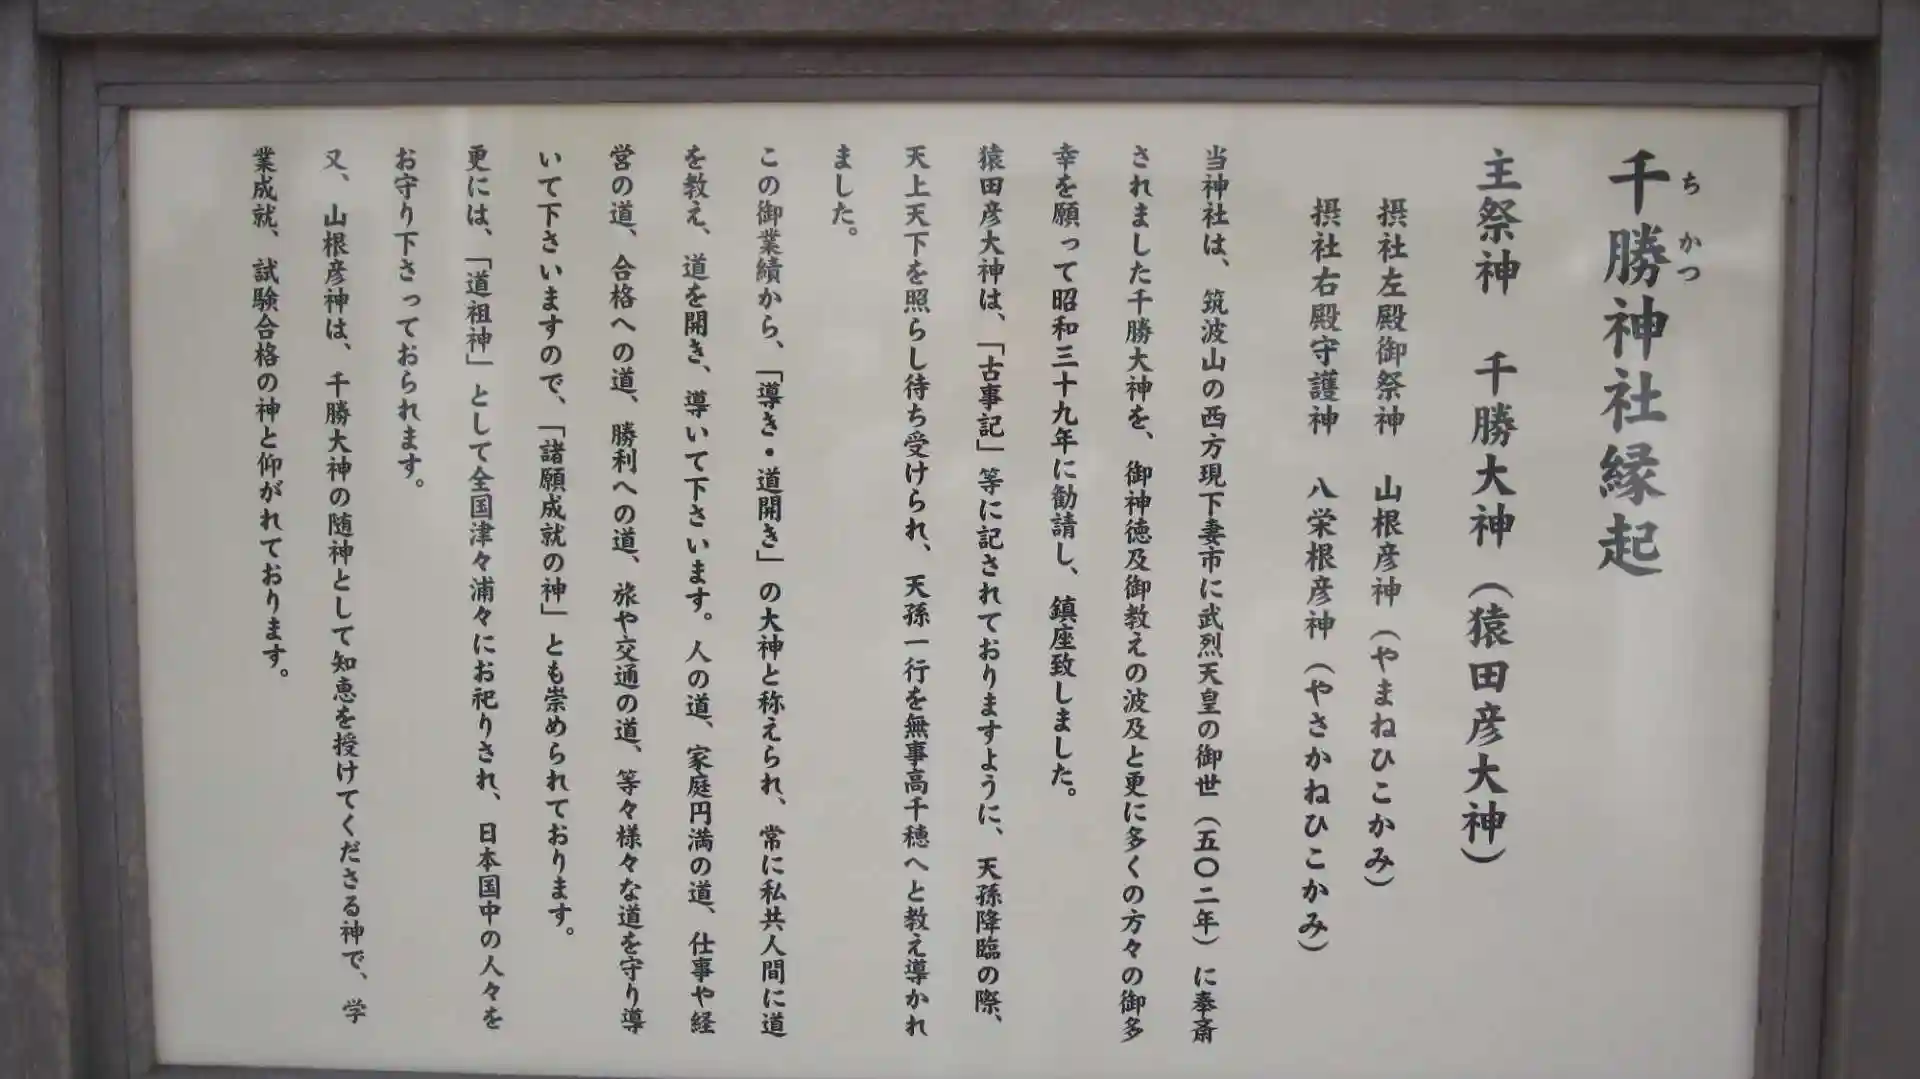 千勝神社縁起
ちかつ
主祭神　千勝大神（猿田彦大神）
摂社左殿御祭神　山根彦神（やまねひこかみ）
摂社右殿守護神　八栄根彦神（やさかねひこかみ）
当神社は、筑波山の西方現下妻市に武烈天皇の御世（五〇二年）に奉斎
されました千勝大神を、御神徳及御教えの波及と更に多くの方々の御多
幸を願って昭和三十九年に勧請し、鎮座致しました。
猿田彦大神は、「古事記」等に記されておりますように、天孫降臨の際、
天上天下を照らし待ち受けられ、天孫一行を無事高千穂へと教え導かれ
ました。
この御業績から、「導き・道開き」の大神と称えられ、常に私共人間に道
を教え、道を開き、導いて下さいます。人の道、家庭円満の道、仕事や経
営の道、合格への道、勝利への道、旅や交通の道、等々様々な道を守り導
いて下さいますので、「諸願成就の神」とも崇められております。
更には、「道祖神」として全国津々浦々にお祀りされ、日本国中の人々を
お守り下さっておられます。
又、山根彦神は、千勝大神の随神として知恵を授けてくださる神で、学
業成就、試験合格の神と仰がれております。